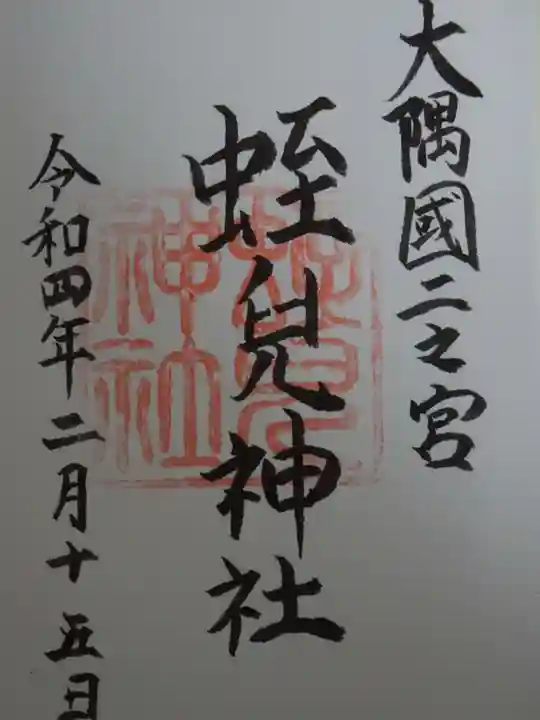 大隅國二之宮
蛭兒神社
令和四年二月十五日